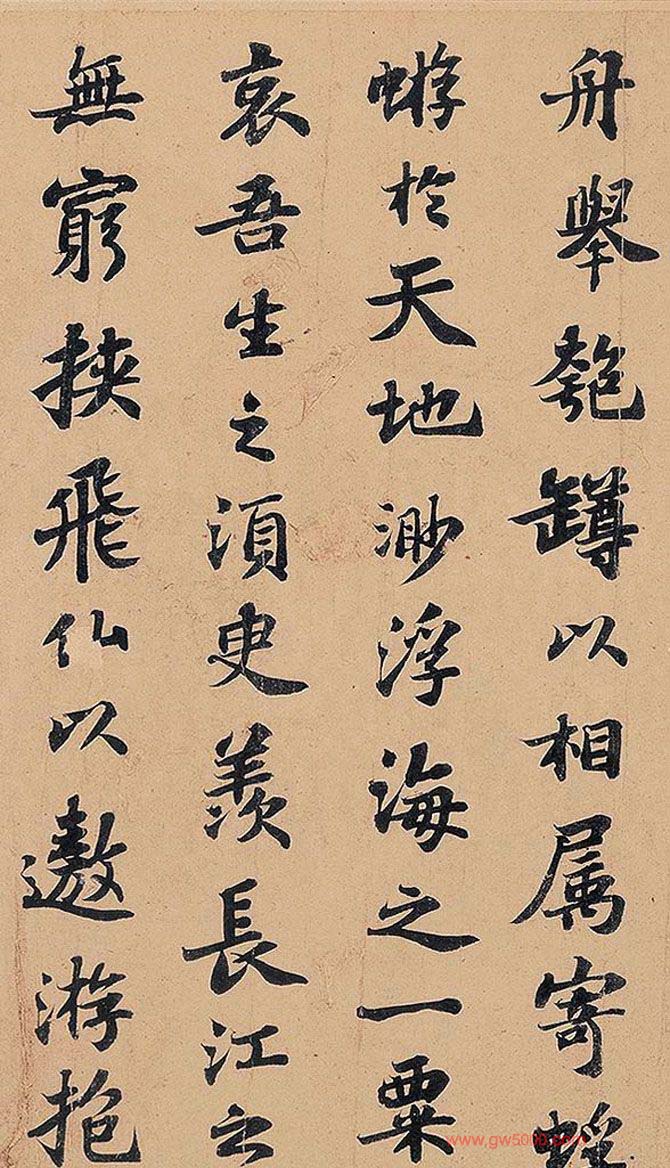 舟舉匏罇以相属寄蜉
蝣於天地渺浮海之一粟
哀吾生之湏臾羨長江之
無窮挾飛仙以遨游抱
www.gw5000.com